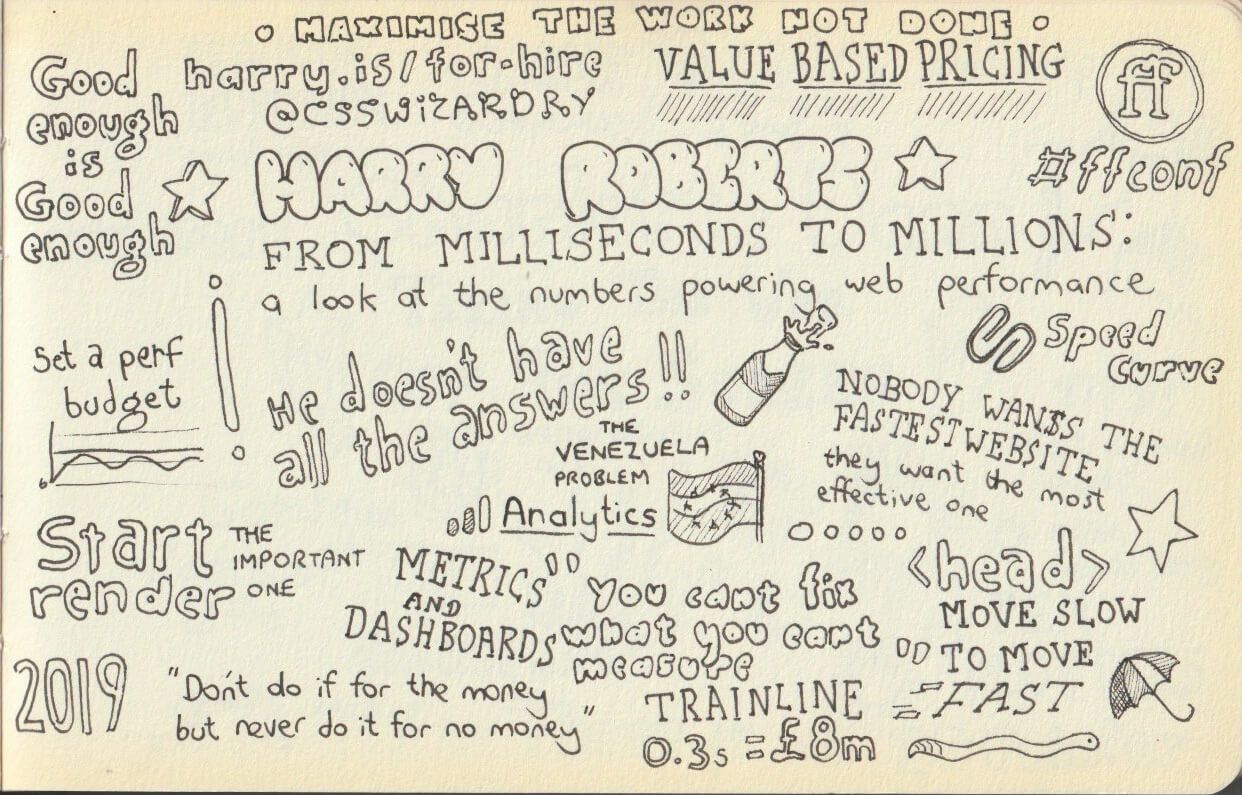 MAXIMISE THE WORK NOT DONE
Good
enough
is
Good
enough
harry.is/for-hire
@CSSWIZARDRY
VALUE BASED PRICING
ff
#ffconf
HARRY ROBERTS
FROM MILLISECONDS TO MILLIONS:
a look at the numbers powering web performance
Set a perf
budget
!
He doesn't have
all the answers!!
Speed
Curve
NOBODY WAN$S THE
FASTEST WEB$ITE
they want the most
effective one
THE
VENEZUELA
PROBLEM
Analytics
Start
render
THE
IMPORTANT
ONE
METRICS
AND
DASHBOARDS
"You cant fix
what you cant
measure"
<head>
MOVE SLOW
TO MOVE
FAST
2019
"Don't do if for the money
but never do it for no money"
TRAINLINE
0.3s = £8m